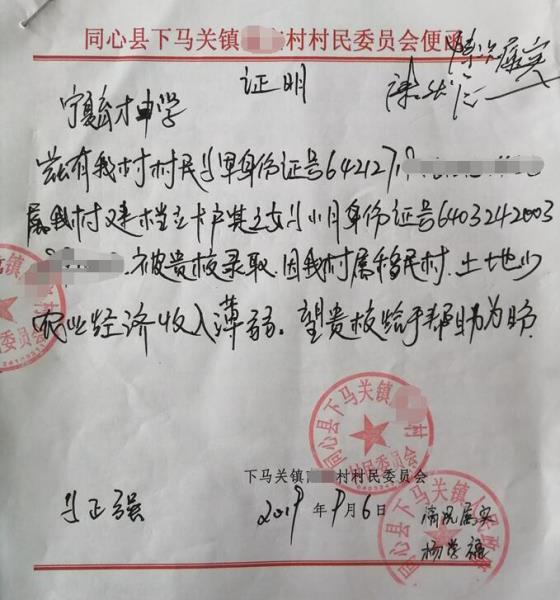 同心县下马关镇村村民委员会便函
情况属实
证明
宁夏育才中学
兹有我村村民马军身份证号642127
属我村建档立卡户其子女马小月身份证号6403242003
被贵校录取。因我村属移民村、土地少
农业经济收入薄弱。望贵校给予帮助为盼
同心县下马关镇村村民委员会
下马关镇村村民委员会
马正强
2019年9月6日
情况属实
杨学禄